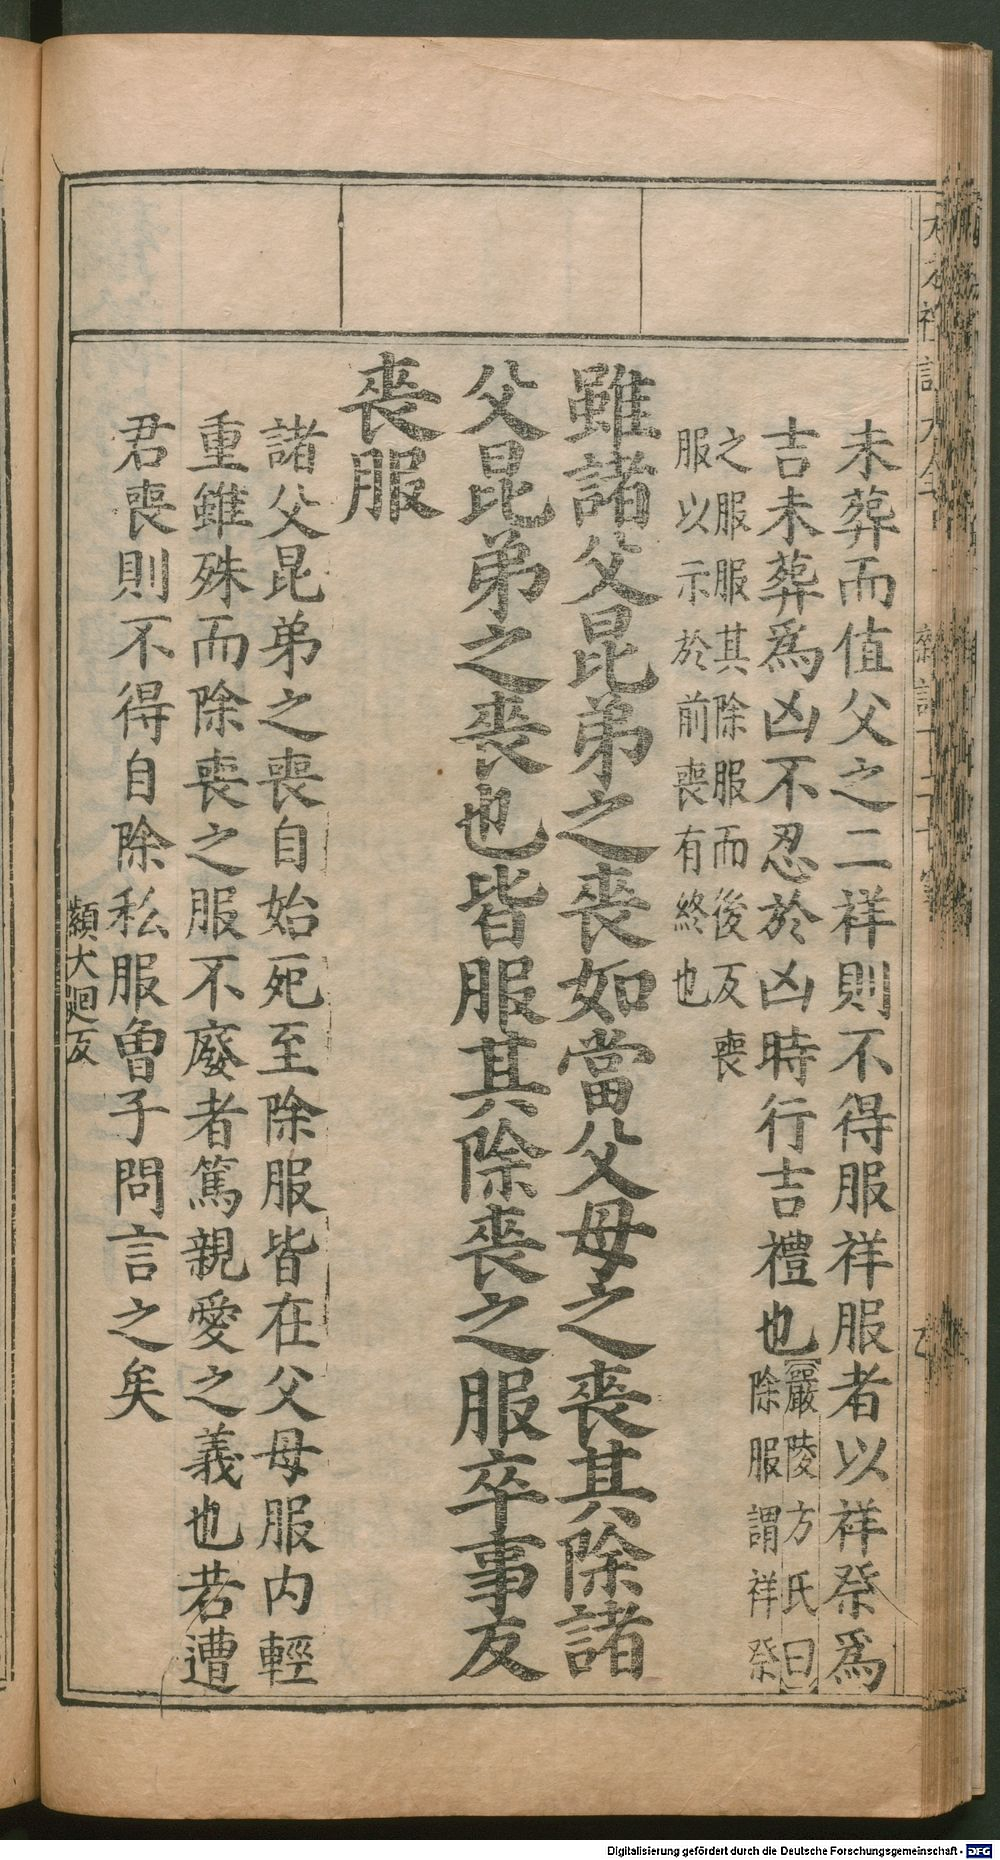 未葬而值父之二祥則不得服祥服者以祥祭爲
吉未葬爲凶不忍於凶時行吉禮也【嚴陵方氏曰】除服謂祥祭
之服服其除服而後反喪
服以示於前喪有終也
雖諸父昆弟之喪如當父母之喪其除諸
父昆弟之喪也皆服其除喪之服卒事反
喪服
諸父昆弟之喪自始死至除服皆在父母服内輕
重雖殊而除喪之服不廢者篤親愛之義也若遭
君喪則不得自除私服曾子問言之矣
顈犬迥反
Digitalisierung gefördert durch die Deutsche Forschungsgemeinschaft - DFG